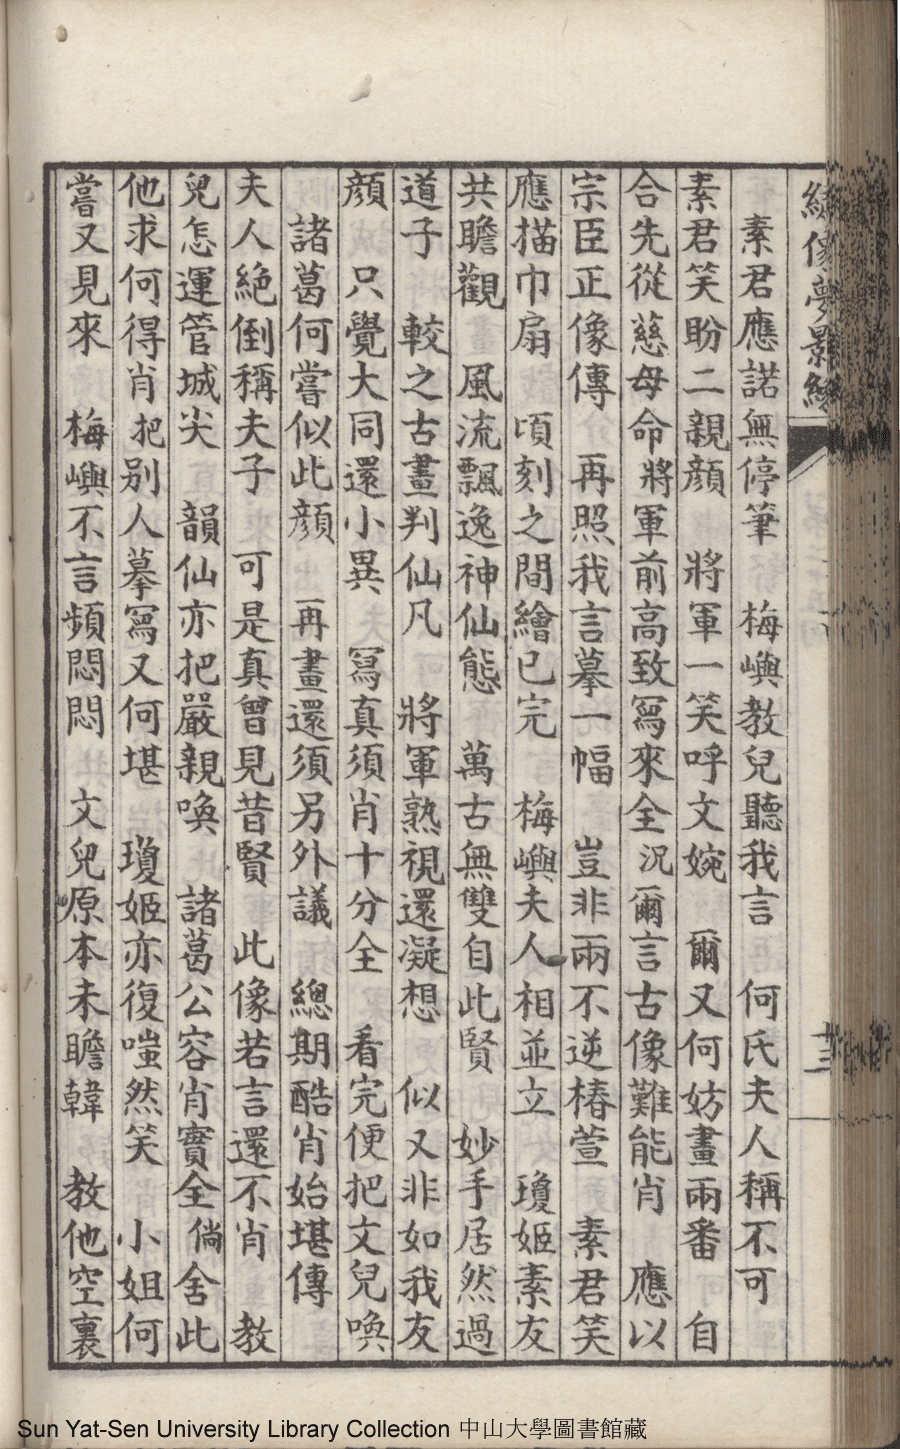 繪像夢影緣
十三
素君應諾無停筆　梅嶼教兒聽我言　何氏夫人稱不可
素君笑盼二親顏　將軍一笑呼文婉　爾又何妨畫兩番　自
合先從慈母命　將軍前高致寫來全　況爾言古像難能肖　應以
宗臣正像傳　再照我言摹一幅　豈非兩不逆椿萱　素君笑
應描巾扇　頃刻之間繪已完　梅嶼夫人相並立　瓊姬素友
共瞻觀　風流飄逸神仙態　萬古無雙自此賢　妙手居然過
道子　較之古畫判仙凡　將軍熟視還凝想　似又非如我友
顏　只覺大同還小異　寫真須肖十分全　看完便把文兒喚
諸葛何嘗似此顏　再畫還須另外議　總期酷肖始堪傳
夫人絕倒稱夫子　可是真曾見昔賢　此像若言還不肖　教
兒怎運管城尖　韻仙亦把嚴親喚　諸葛公容肖實全　倘舍此
他求何得肖　把別人摹寫又何堪　瓊姬亦復嗤然笑　小姐何
嘗又見來　梅嶼不言頻悶悶　文兒原本未瞻韓　教他空裏
Sun Yat-Sen University Library Collection 中山大學圖書館藏